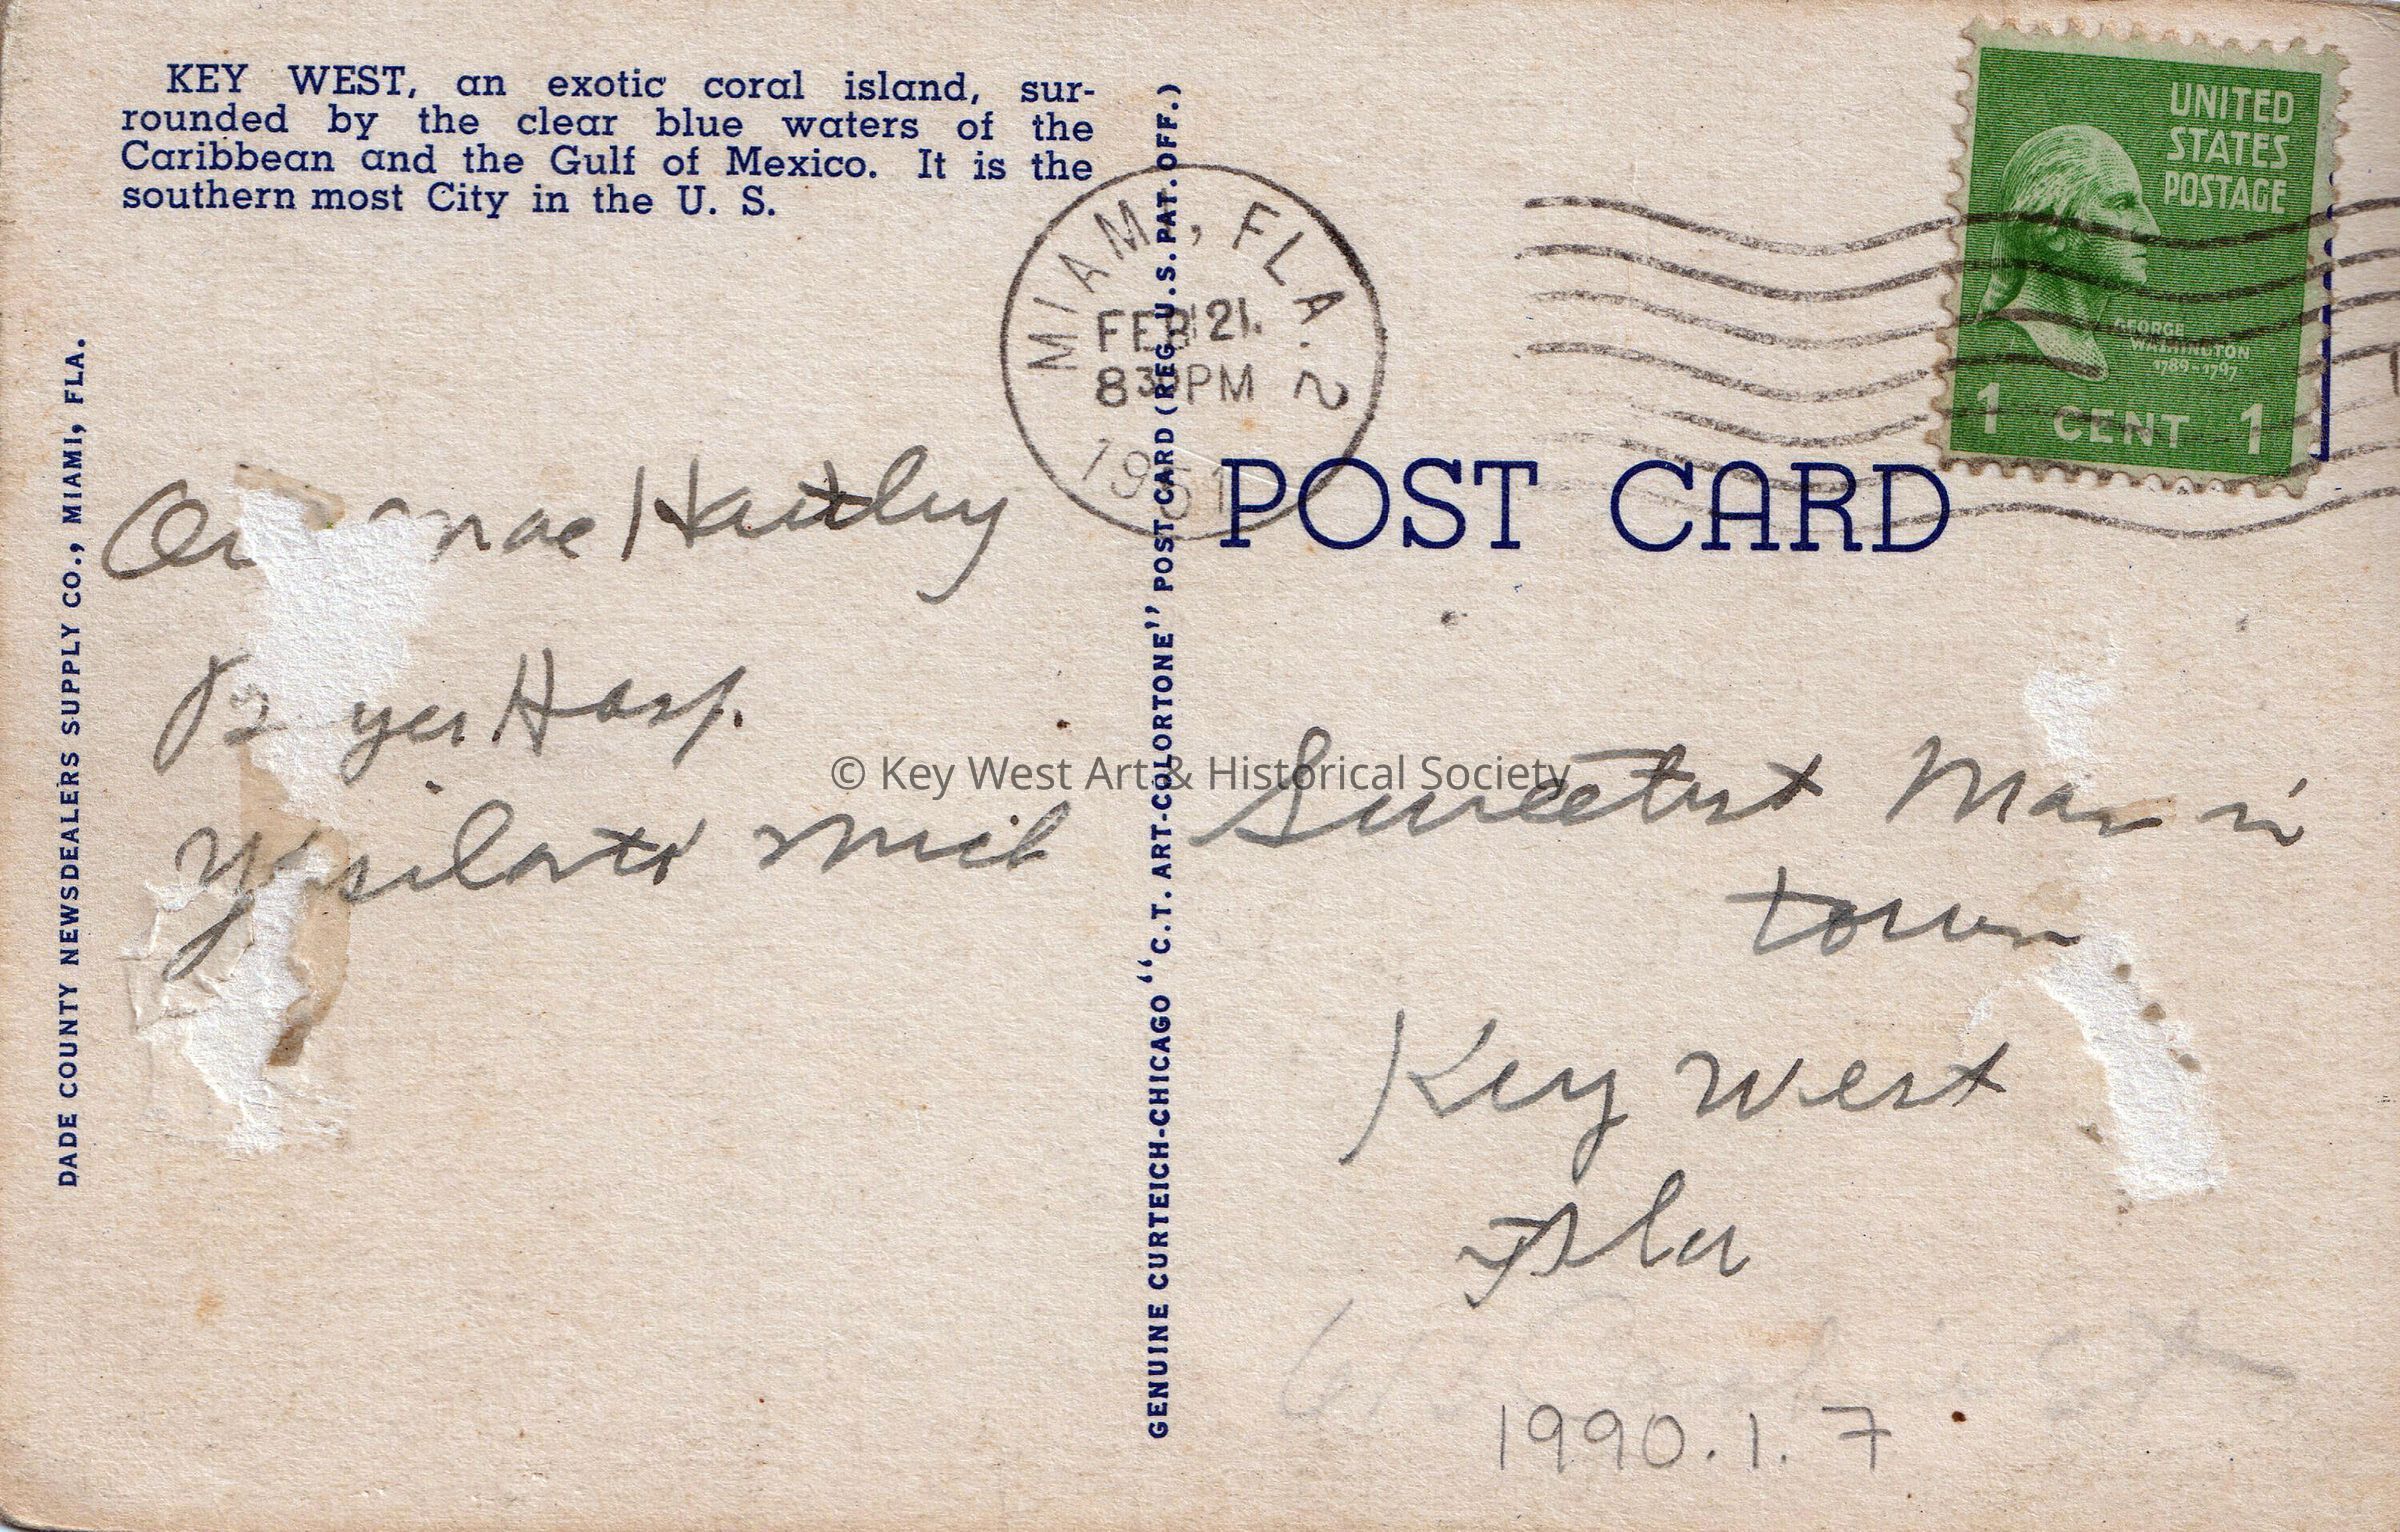 KEY WEST, an exotic coral island, sur-
rounded by the clear blue waters of the
Caribbean and the Gulf of Mexico. It is the
southern most City in the U. S.
DADE COUNTY NEWSDEALERS SUPPLY CO., MIAMI, FLA.
mae Hartley
Hosp.
Ypsilanti Mich
GENUINE CURTEICH-CHICAGO "C.T. ART-COLORTONE" POST CARD (REG. U.S. PAT. OFF.)
MIAMI, FLA. 2
FEB 21
8 30 PM
1951
UNITED
STATES
POSTAGE
GEORGE
WASHINGTON
1789-1797
1 CENT 1
POST CARD
Sweetest Man in
town
Key West
Fla
1990.1.7
© Key West Art & Historical Society